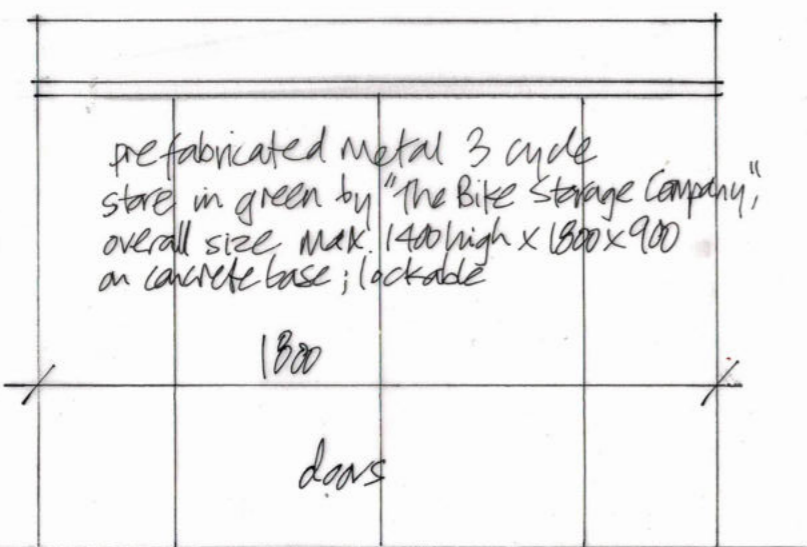 prefabricated metal 3 cycle
store in green by "The Bike Storage Company",
overall size max. 1400 high x 1800 x 900
on concrete base; lockable
1800
doors